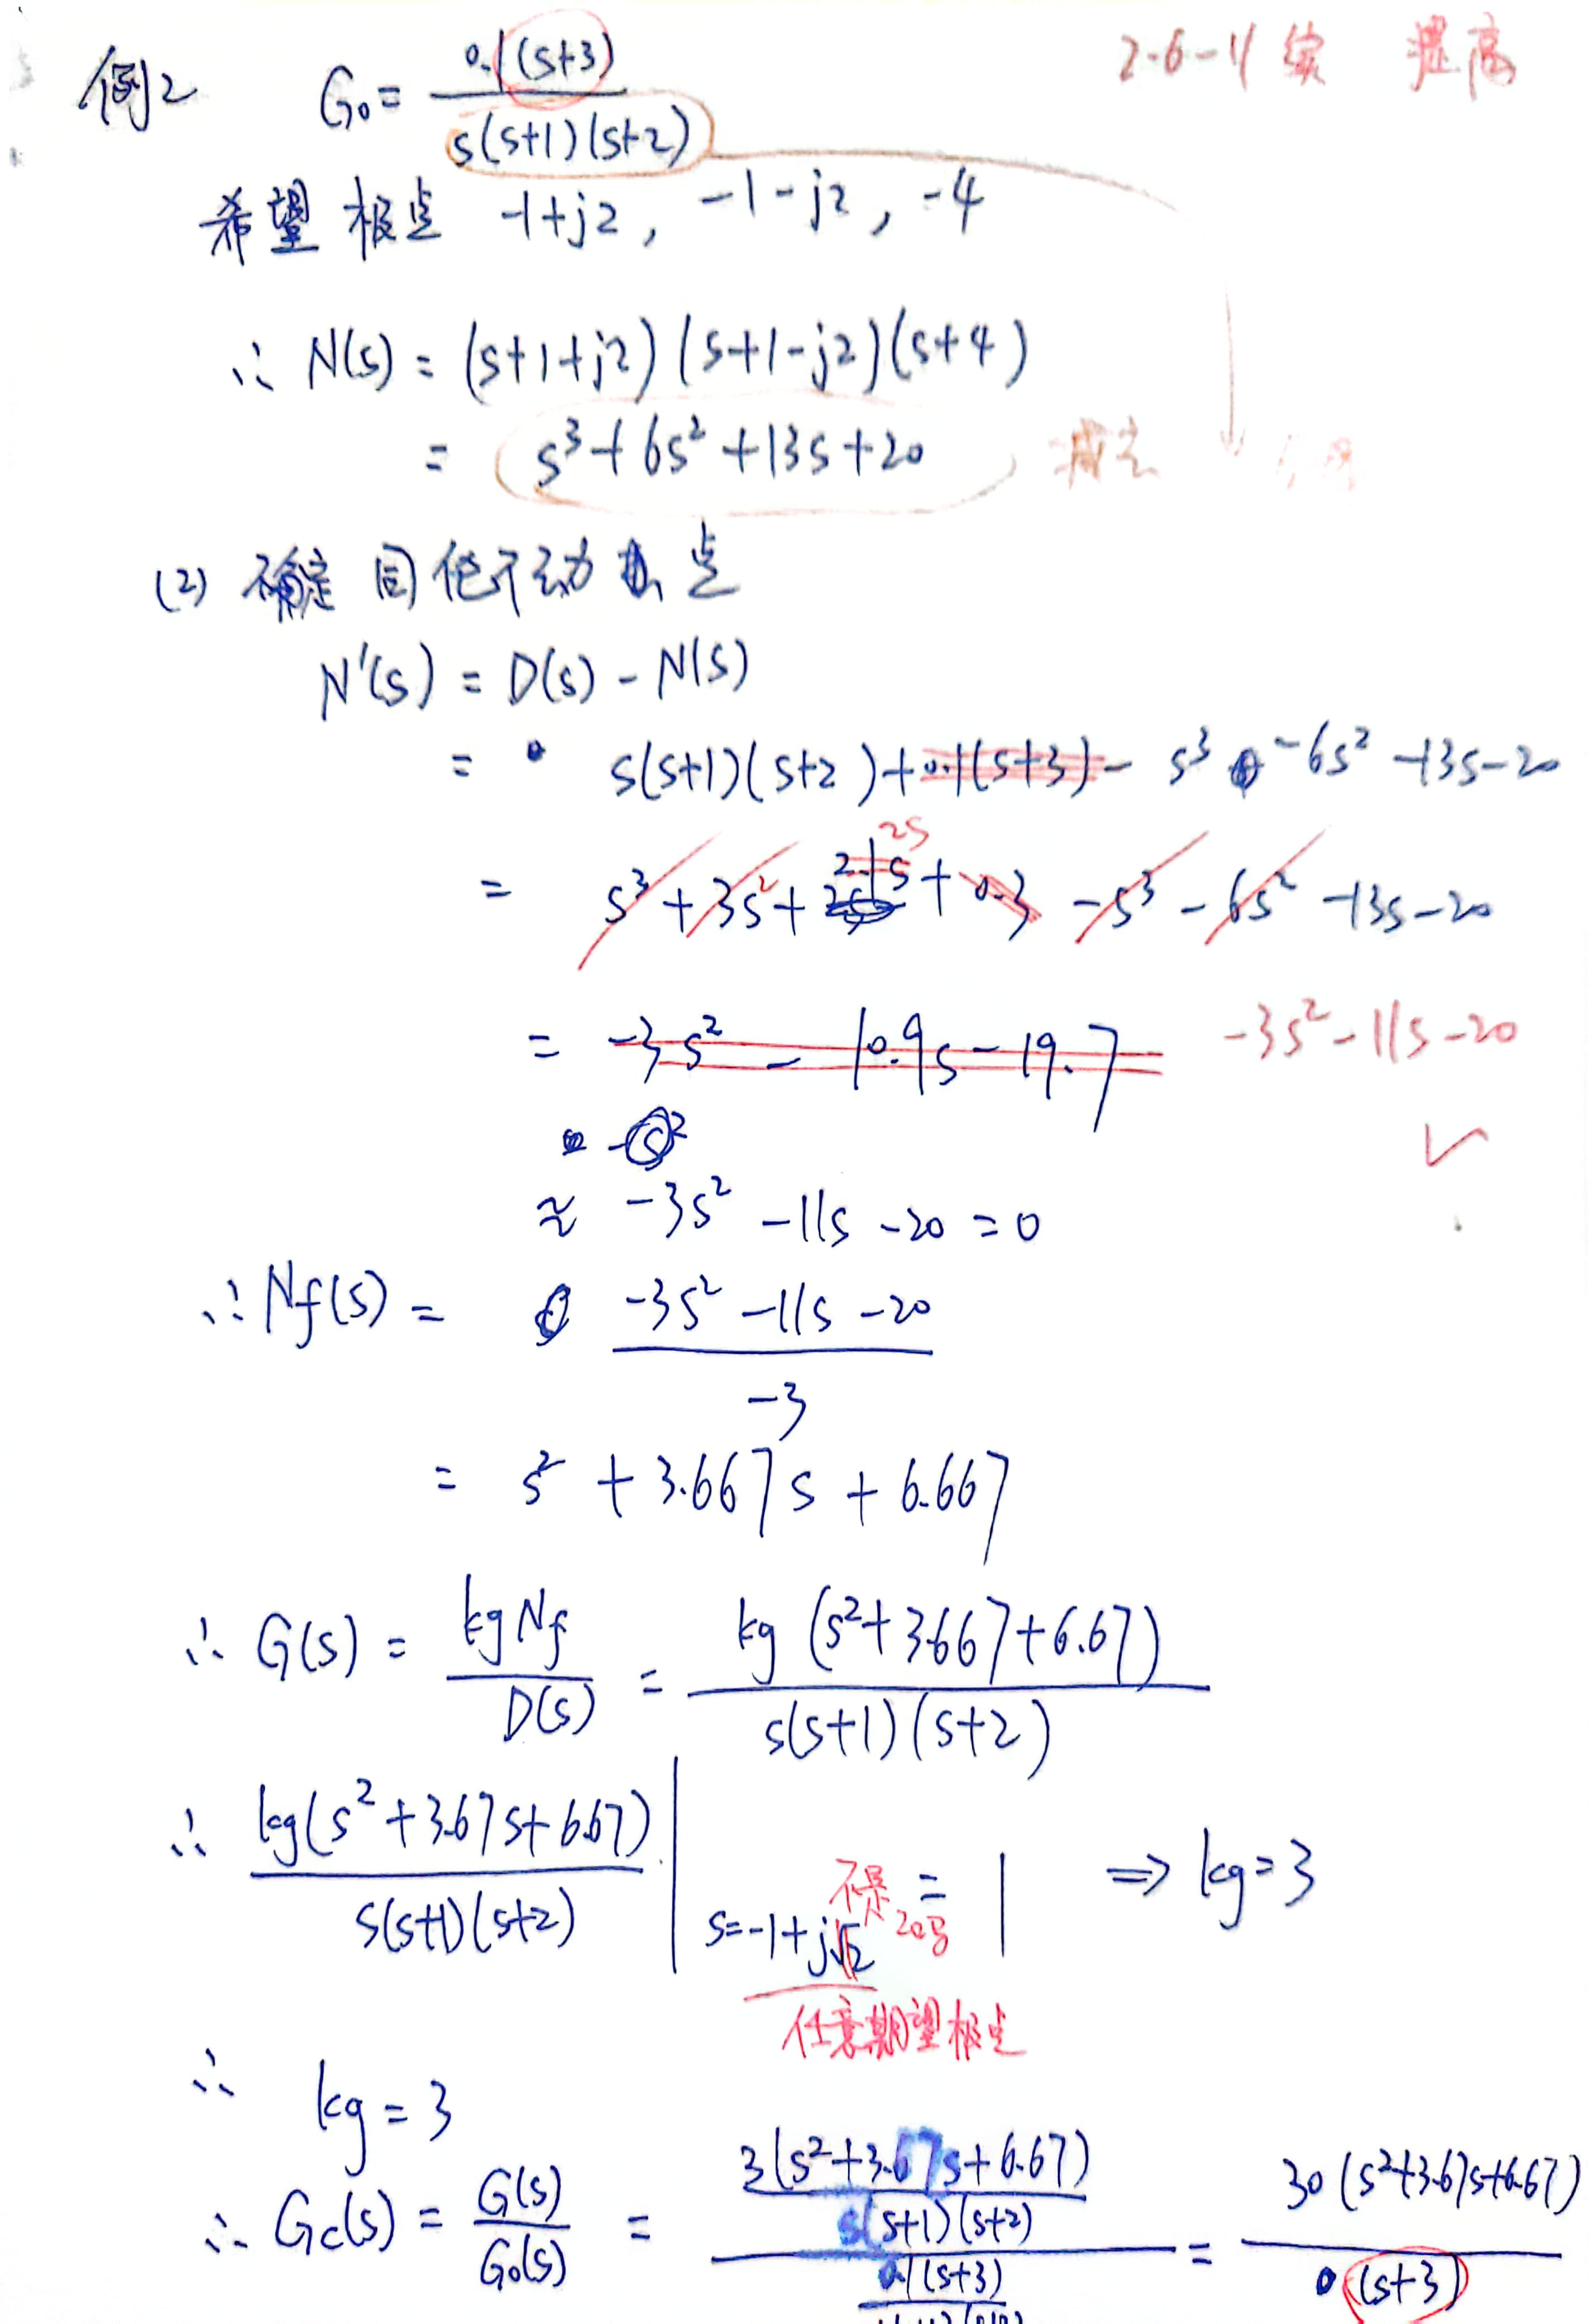 2-6-4 续 提高
例2 G₀ = 0.1(s+3) / s(s+1)(s+2)
希望极点 -1+j2, -1-j2, -4
∴ N(s) = (s+1+j2)(s+1-j2)(s+4)
= s³+6s²+13s+20 减去
(2) 确定 点
N'(s) = D(s) - N(s)
= s(s+1)(s+2)+0.1(s+3)- s³ -6s² -13s-20
2s
= s³ + 3s² + 2.1s + 0.3 - s³ - 6s² -13s-20
= -3s² - 10.9s - 19.7 -3s²-11s-20
≈ -3s² -11s -20 = 0
∴ Nf(s) = -3s² -11s -20 / -3
= s² + 3.667s + 6.667
∴ G(s) = kg Nf / D(s) = kg (s²+3.667+6.67) / s(s+1)(s+2)
∴ kg(s²+3.67s+6.67) / s(s+1)(s+2) | s=-1+j√2 = 1 ⇒ kg=3
不是 根号
任意期望极点
∴ kg = 3
∴ Gc(s) = G(s) / G₀(s) = 3(s²+3.67s+6.67) / s(s+1)(s+2) / 0.1(s+3) = 30(s²+3.67s+6.67) / (s+3)